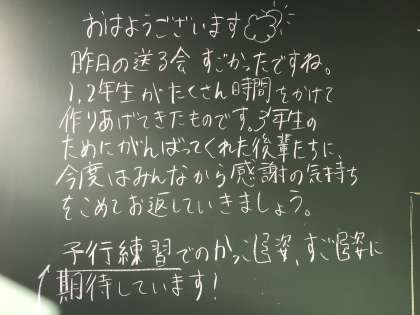 おはようございます
昨日の送る会 すごかったですね。
1,2年生がたくさん時間をかけて
作りあげてきたものです。3年生の
ためにがんばってくれた後輩たちに、
今度はみんなから感謝の気持ち
をこめてお返していきましょう。
予行練習でのかっこ姿、すご姿に
期待しています!